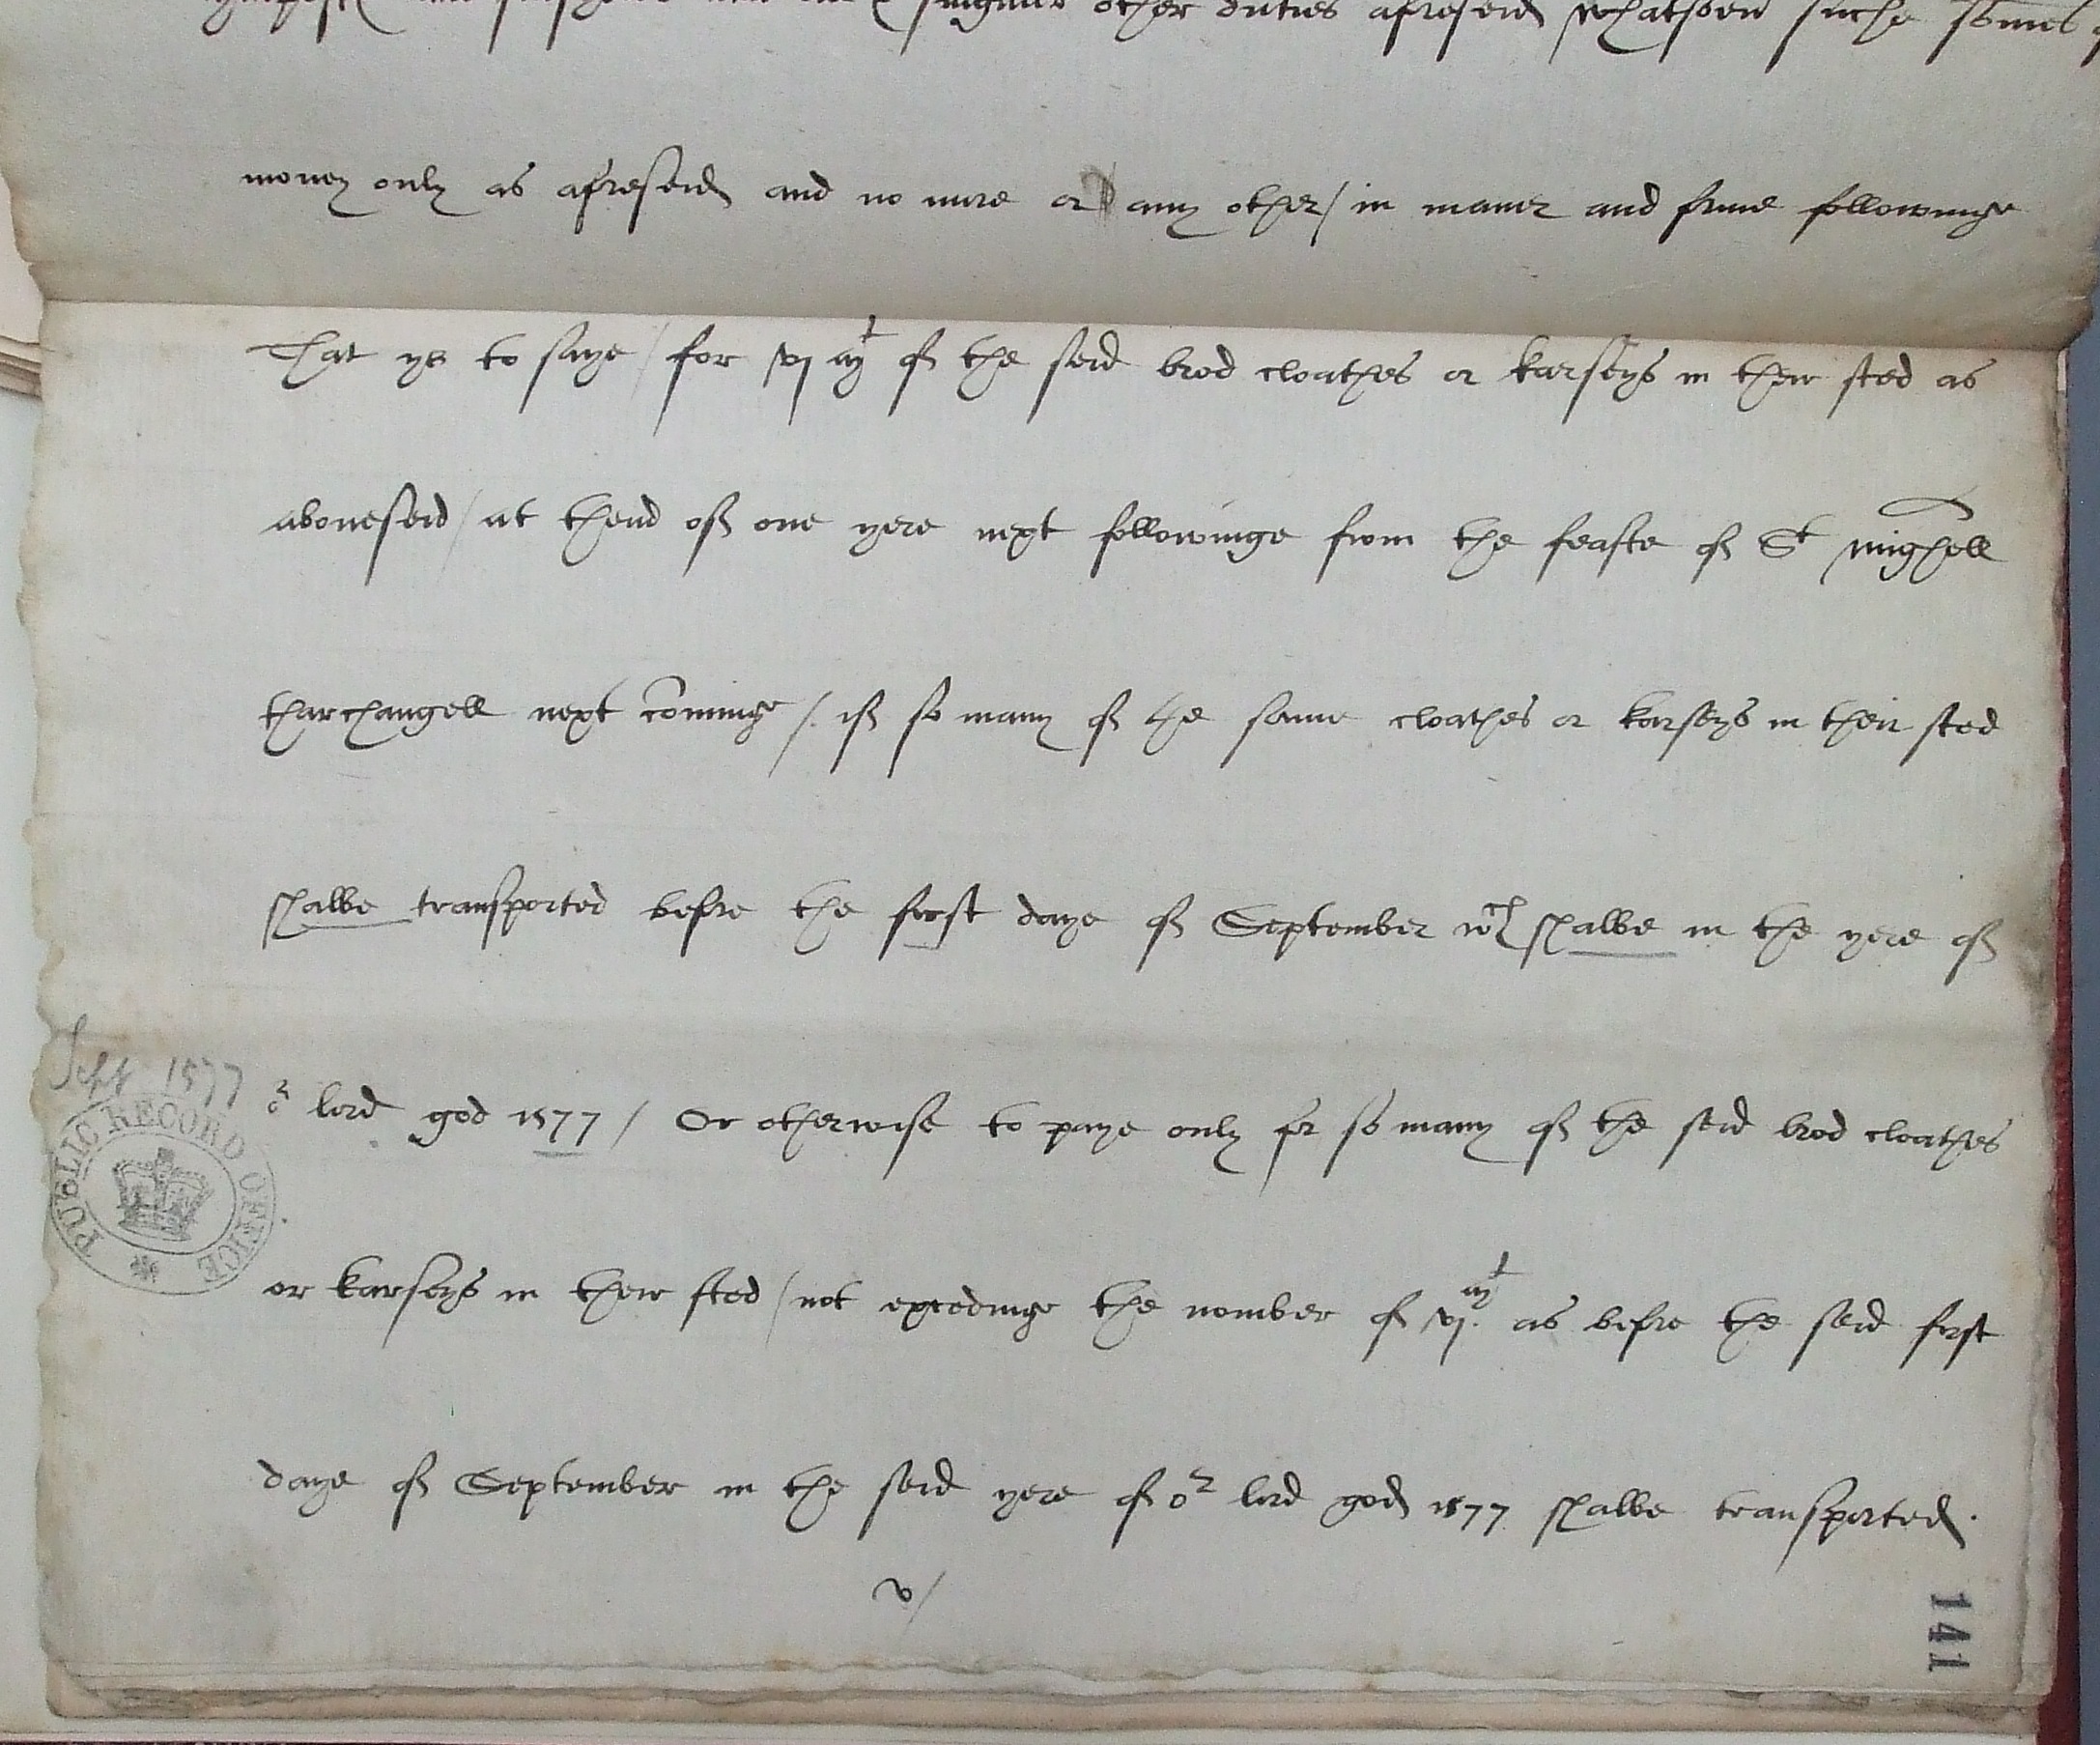 singuler other duties aforeseid Whatsoeu suche somes
money only as aforeseid and no more or any other / in maner and forme followinge
That ys to saye / for vj m^t of the seid brod cloathes or karseys in their sted as
aboueseid / at thend off one yere next followinge from the feaste of S^t mighell
tharchangell next cominge /. if so many of the same cloathes or karseys in their sted
shalbe transported before the first daye of September w^ch shalbe in the yere of
o^r lord god 1577 / Or otherwise to paye only for so many of the seid brod cloathes
or karseys in their sted / not excedinge the nomber of vj. m^t as before the seid first
daye of September in the seid yere of o^r lord god 1577 shalbe transported.
v /
Sept 1577
PUBLIC RECORD OFFICE
141